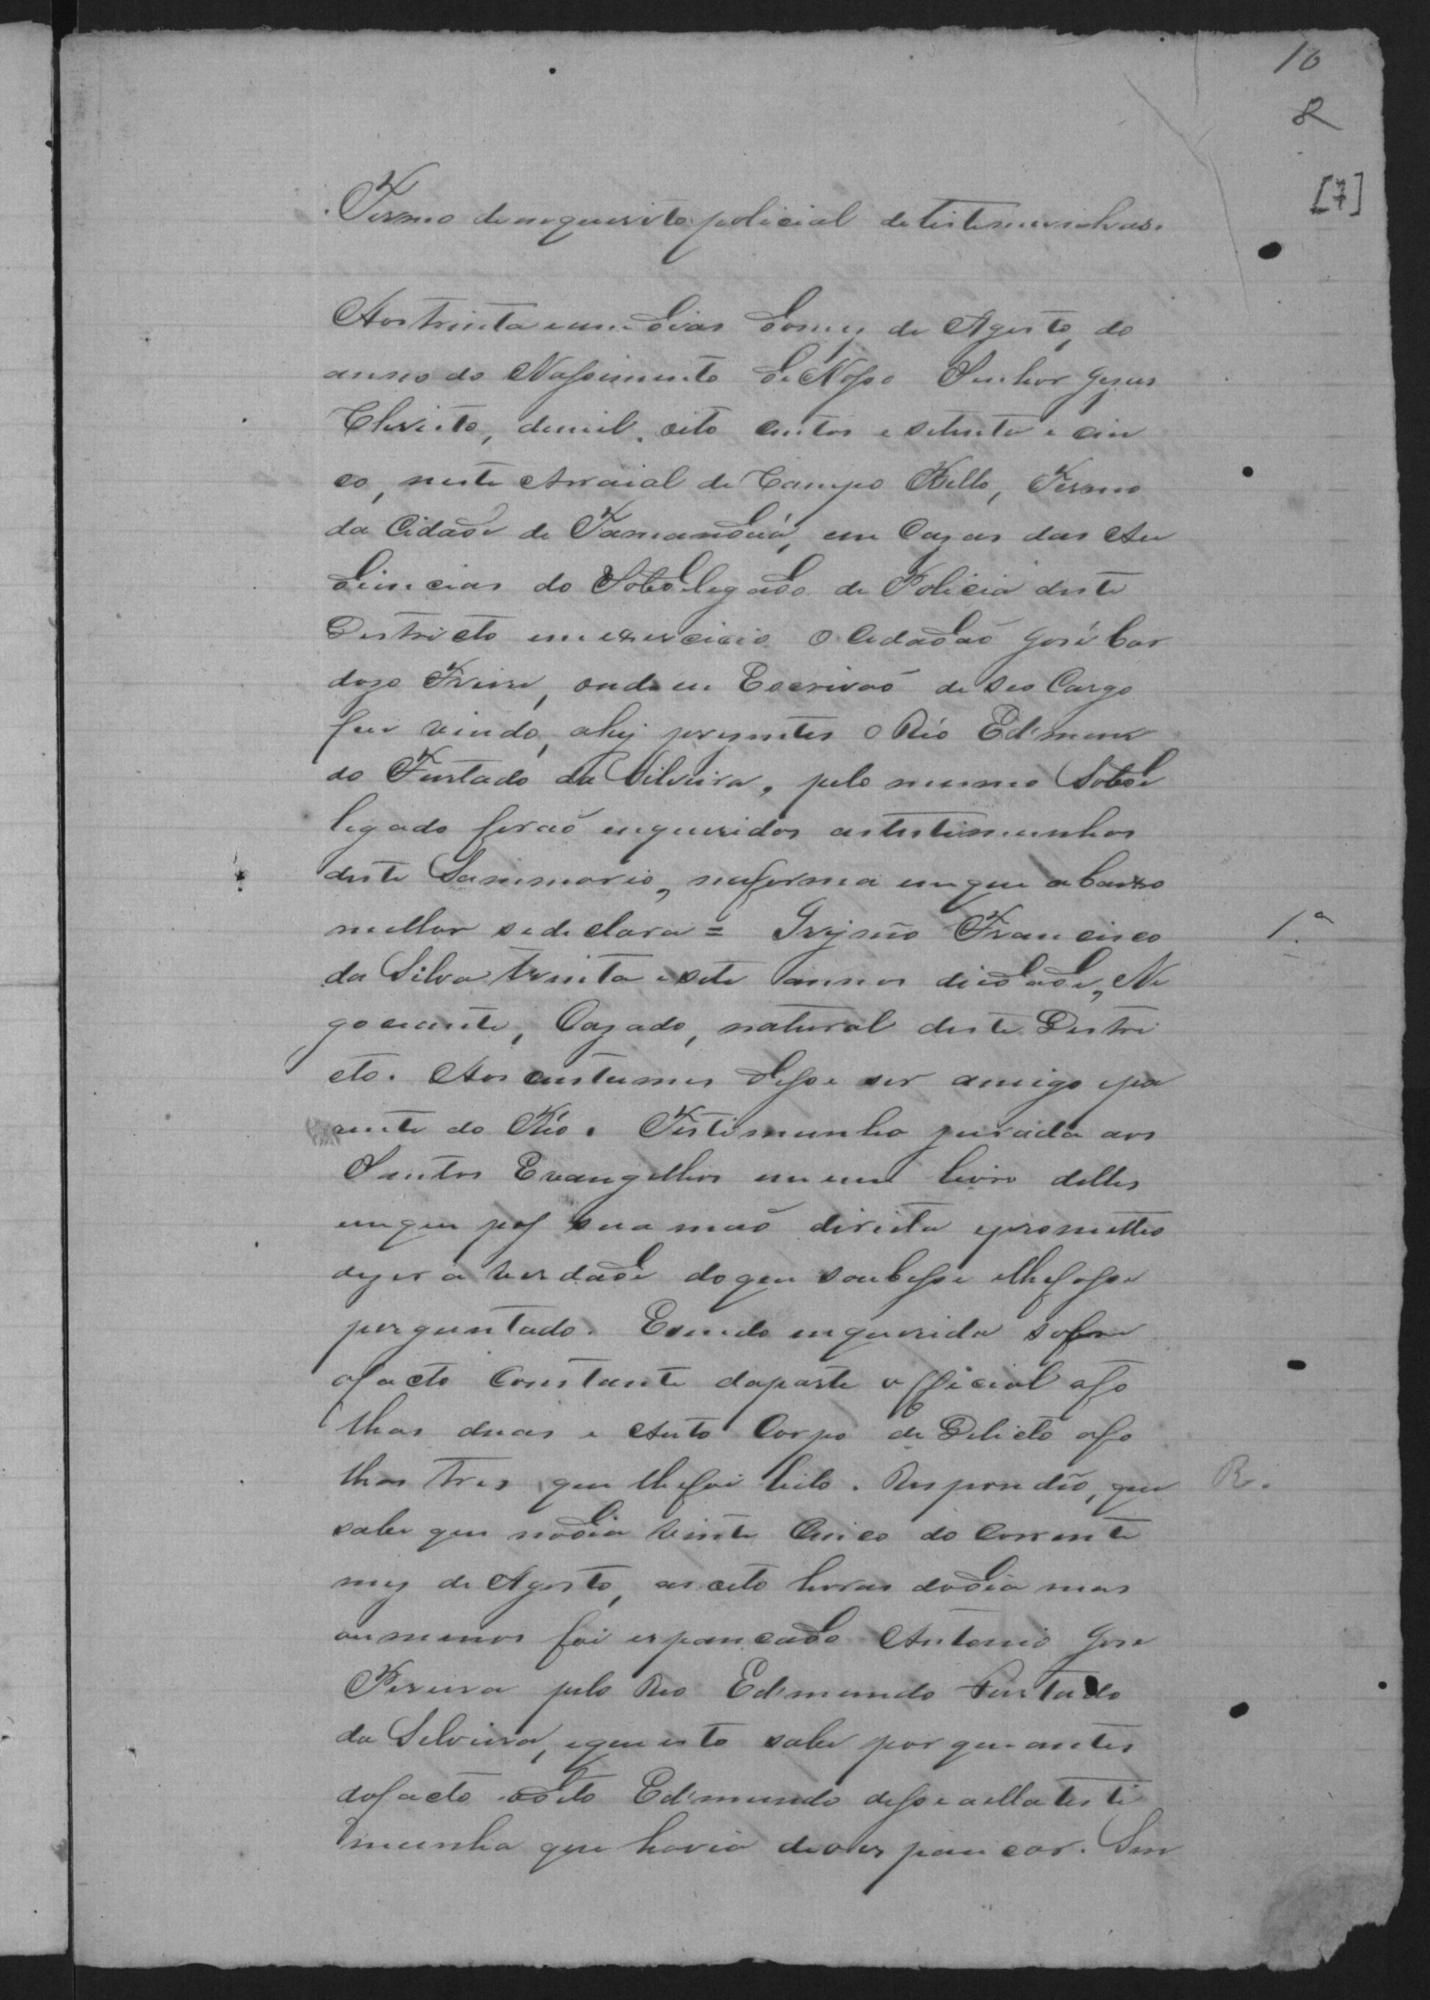 10
R
[7]
Termo de enquerito policial de testemunhas.
Aos trinta e um dias do mez de Agosto, do
anno do Nassimento de Nosso Senhor Jezus
Christo, de mil, oito centos e setenta e cin
co, neste Arraial de Campo Bello, Termo
da Cidade de Tamanduá, em Cazas das Au
diencias do Sobdelegado de Policia deste
Destricto em exercicio o Cidadaõ José Car
dozo Freire, onde eu Escrivaõ de seo Cargo
fui vindo, ahy prezentes o Réo Edmun
do Furtado da Silveira, pelo mesmo Sobde
legado foraõ enqueridos as testemunhas
deste Summario, na forma em que abaixo
melhor se declara =
Francisco
1.ª
da Silva trinta e sete annos de idade, Ne
gociante, Cazado, natural deste Destri
cto. Aos custumes disse ser amigo e pa
rente do Réo. Testemunha jurada aos
Santos Evangelhos em um livro delles
em que pos sua maõ direita e prometteo
dizer a verdade do que soubesse e lhe fosse
perguntado. E sendo enquerida sobre
o facto constante da parte official a fo
lhas duas e Auto Corpo de Delicto a fo
lhas tres que lhe foi lido. Respondeo, que
R.
sabe que no dia vinte Cinco do Corrente
mez de Agosto, as oito horas do dia mas
ou menos foi espancado Antonio Jose
Pereira pelo Reo Edmundo Furtado
da Silveira, e que isto sabe por que antes
do facto o dito Edmundo disse a ella teste
munha que havia de o espancar. Sem